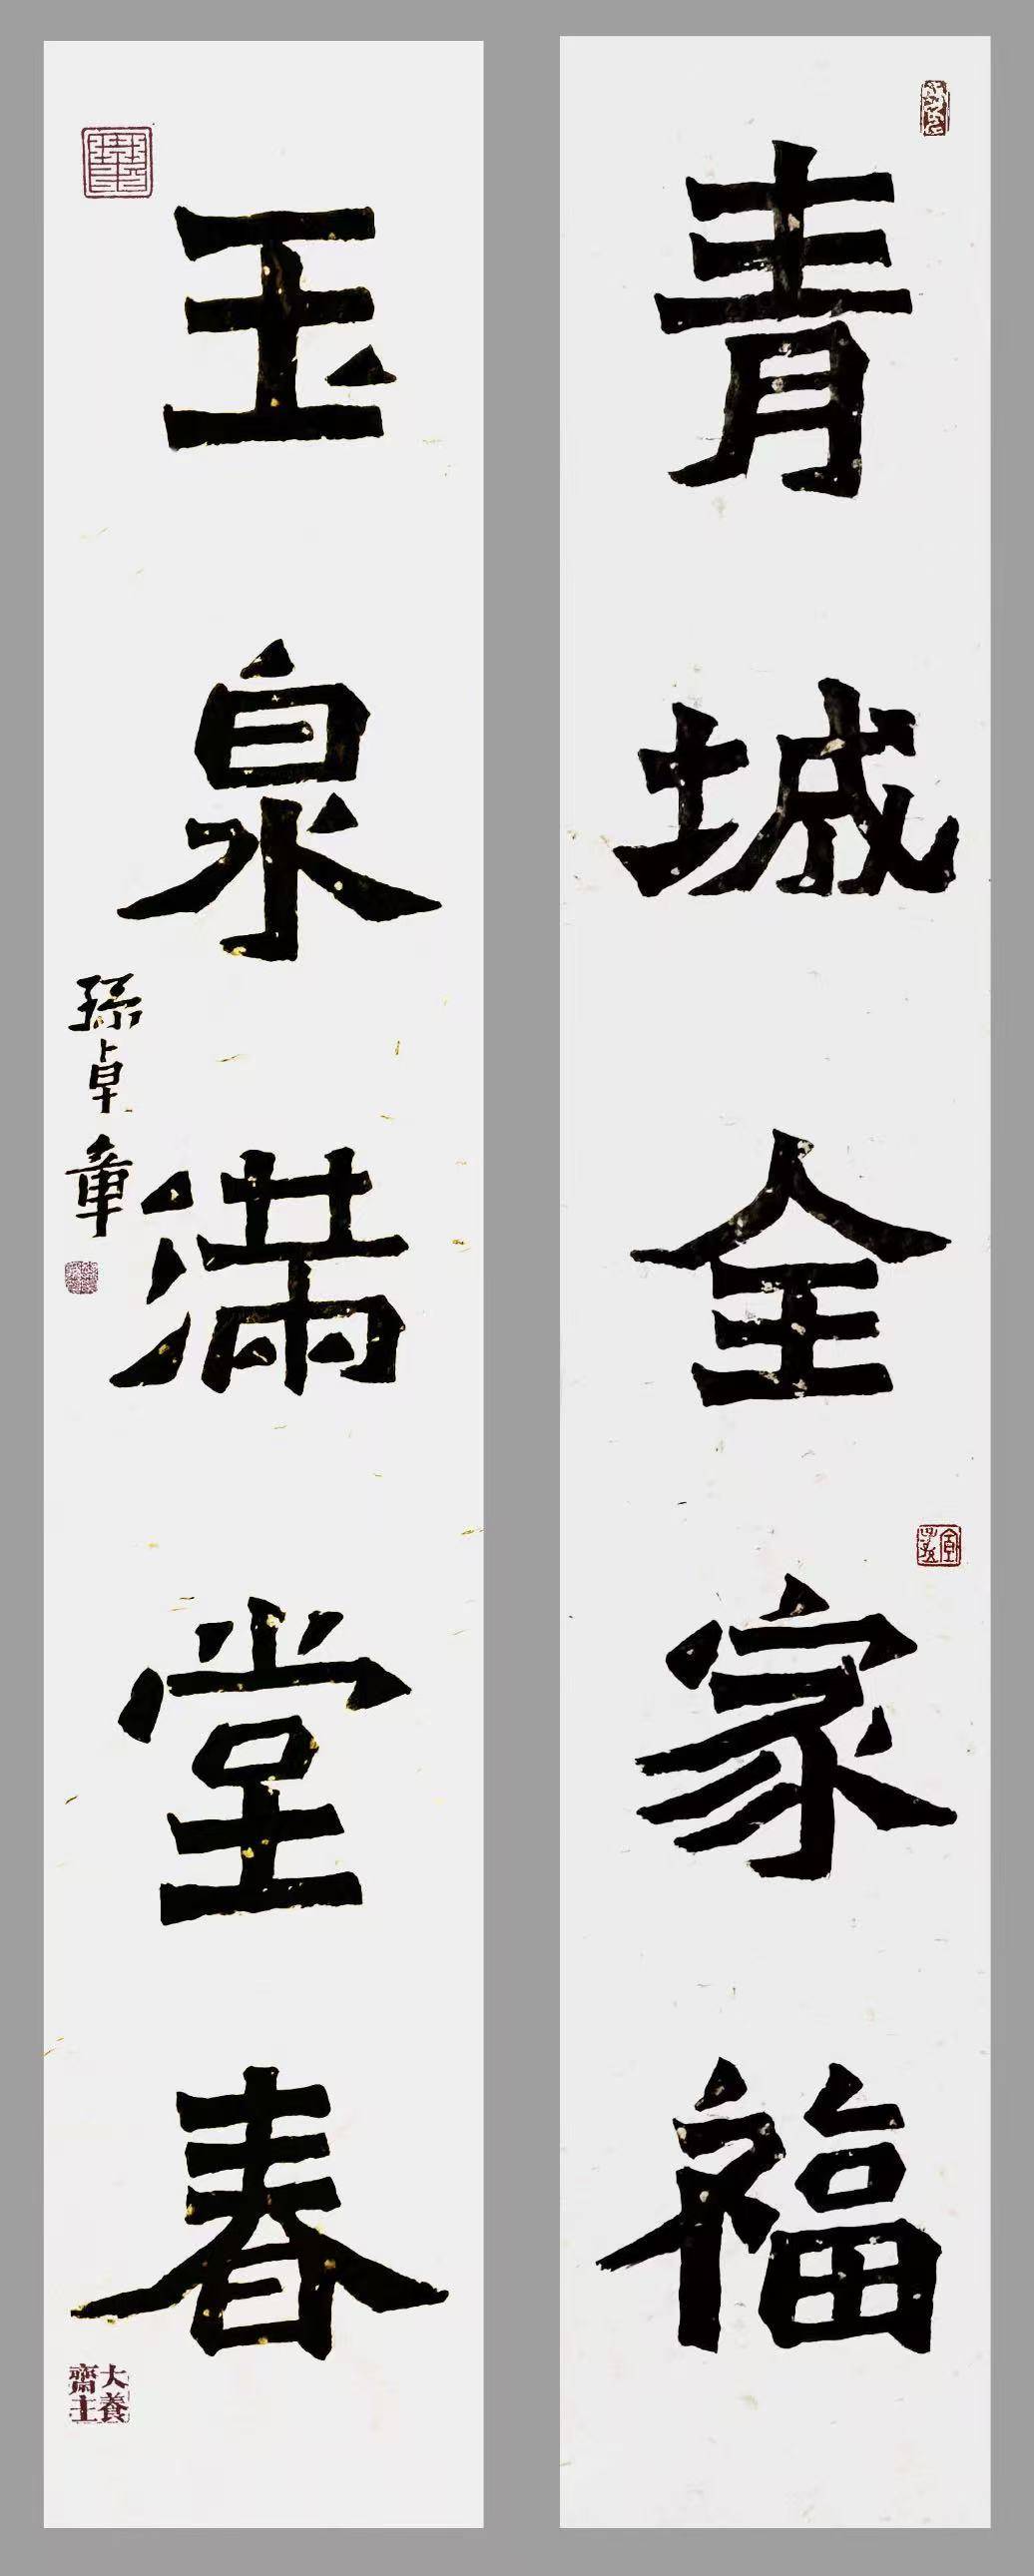 青城全家福
玉泉满堂春
孫卓章
大養齋主